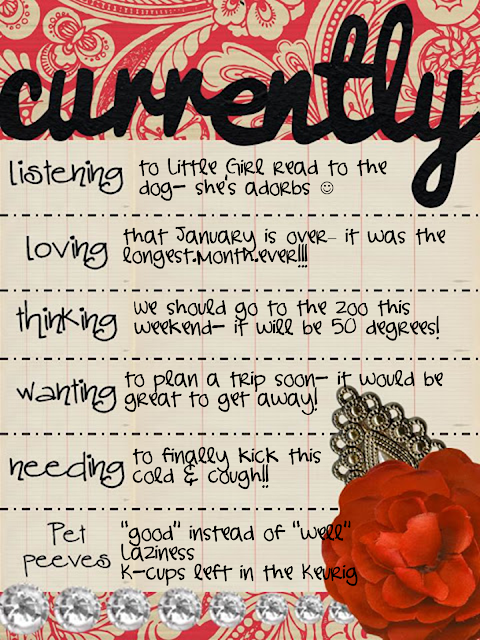 currently
listening
to Little Girl read to the
dog- she's adorbs ☺
loving
that January is over- it was the
longest.month.ever!!!
thinking
we should go to the zoo this
weekend- it will be 50 degrees!
wanting
to plan a trip soon- it would be
great to get away!
needing
to finally kick this
cold & cough!!
Pet
peeves
"good" instead of "well"
Laziness
K-cups left in the Keurig